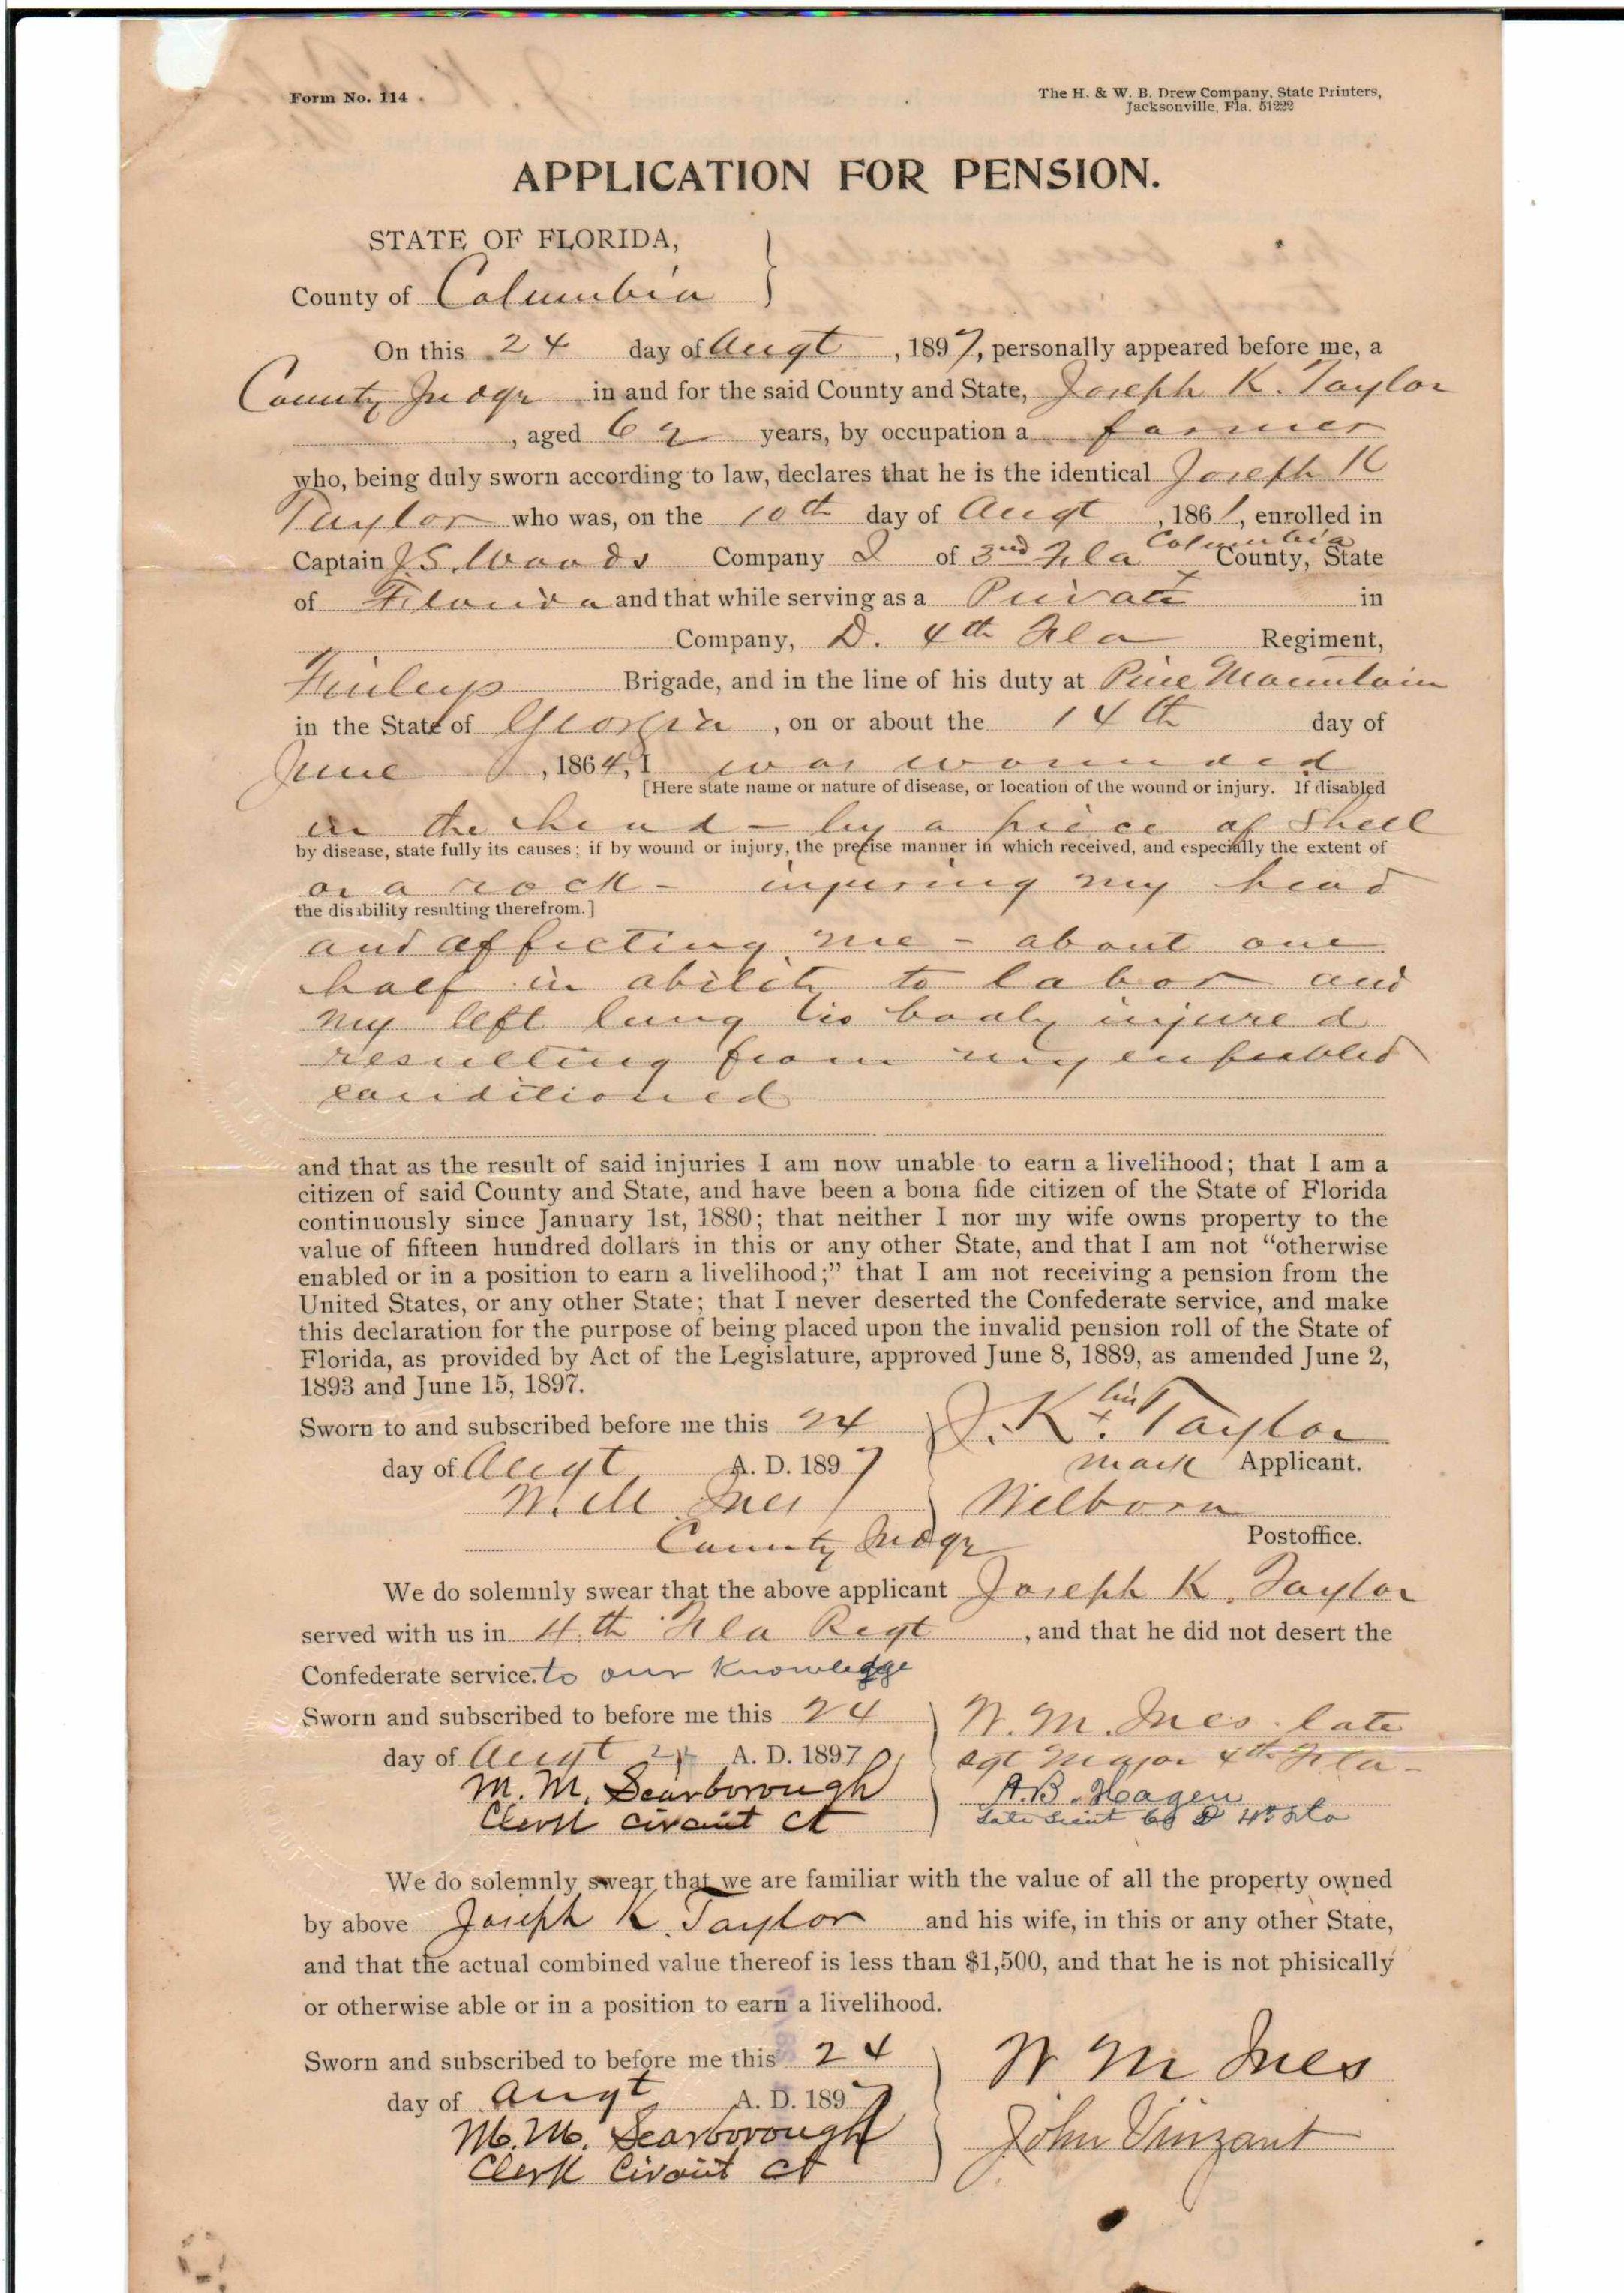 Form No. 114
The H. & W. B. Drew Company, State Printers,
Jacksonville, Fla. 51222
APPLICATION FOR PENSION.
STATE OF FLORIDA,
County of Columbia
On this 24 day of Augt, 1897, personally appeared before me, a
County Judge in and for the said County and State, Joseph K. Taylor
, aged 62 years, by occupation a farmer
who, being duly sworn according to law, declares that he is the identical Joseph K
Taylor who was, on the 10th day of Augt, 1861, enrolled in
Captain Woods Company of 3rd Fla Columbia County, State
of Florida and that while serving as a Private in
Company, D. 4th Fla Regiment,
Finleys Brigade, and in the line of his duty at Pine Mountain
in the State of Georgia, on or about the 14th day of
June, 1864, I was wounded
[Here state name or nature of disease, or location of the wound or injury. If disabled
in the head - by a piece of Shell
by disease, state fully its causes; if by wound or injury, the precise manner in which received, and especially the extent of
or a rock - injuring my head
the disability resulting therefrom.]
and affecting me - about one
half in ability to labor and
my left lung is badly injured
resulting from my enfeebled
conditioned
and that as the result of said injuries I am now unable to earn a livelihood; that I am a
citizen of said County and State, and have been a bona fide citizen of the State of Florida
continuously since January 1st, 1880; that neither I nor my wife owns property to the
value of fifteen hundred dollars in this or any other State, and that I am not “otherwise
enabled or in a position to earn a livelihood;” that I am not receiving a pension from the
United States, or any other State; that I never deserted the Confederate service, and make
this declaration for the purpose of being placed upon the invalid pension roll of the State of
Florida, as provided by Act of the Legislature, approved June 8, 1889, as amended June 2,
1893 and June 15, 1897.
Sworn to and subscribed before me this 24 J. K. his x Taylor
day of Augt A. D. 1897 mark Applicant.
W. M Ives Welborn
County Judge Postoffice.
We do solemnly swear that the above applicant Joseph K. Taylor
served with us in 4th Fla Regt, and that he did not desert the
Confederate service. to our Knowledge
Sworn and subscribed to before me this 24 W. M. Ives late
day of Augt 24 A. D. 1897 Sgt Major 4th Fla-
M. M. Scarborough A. B. Hagen
Clerk Circuit Ct Late Lieut Co D 4th Fla
We do solemnly swear that we are familiar with the value of all the property owned
by above Joseph K. Taylor and his wife, in this or any other State,
and that the actual combined value thereof is less than $1,500, and that he is not phisically
or otherwise able or in a position to earn a livelihood.
Sworn and subscribed to before me this 24 W M Ives
day of Augt A. D. 1897
M. M. Scarborough John Vinzant
Clerk Circuit Ct